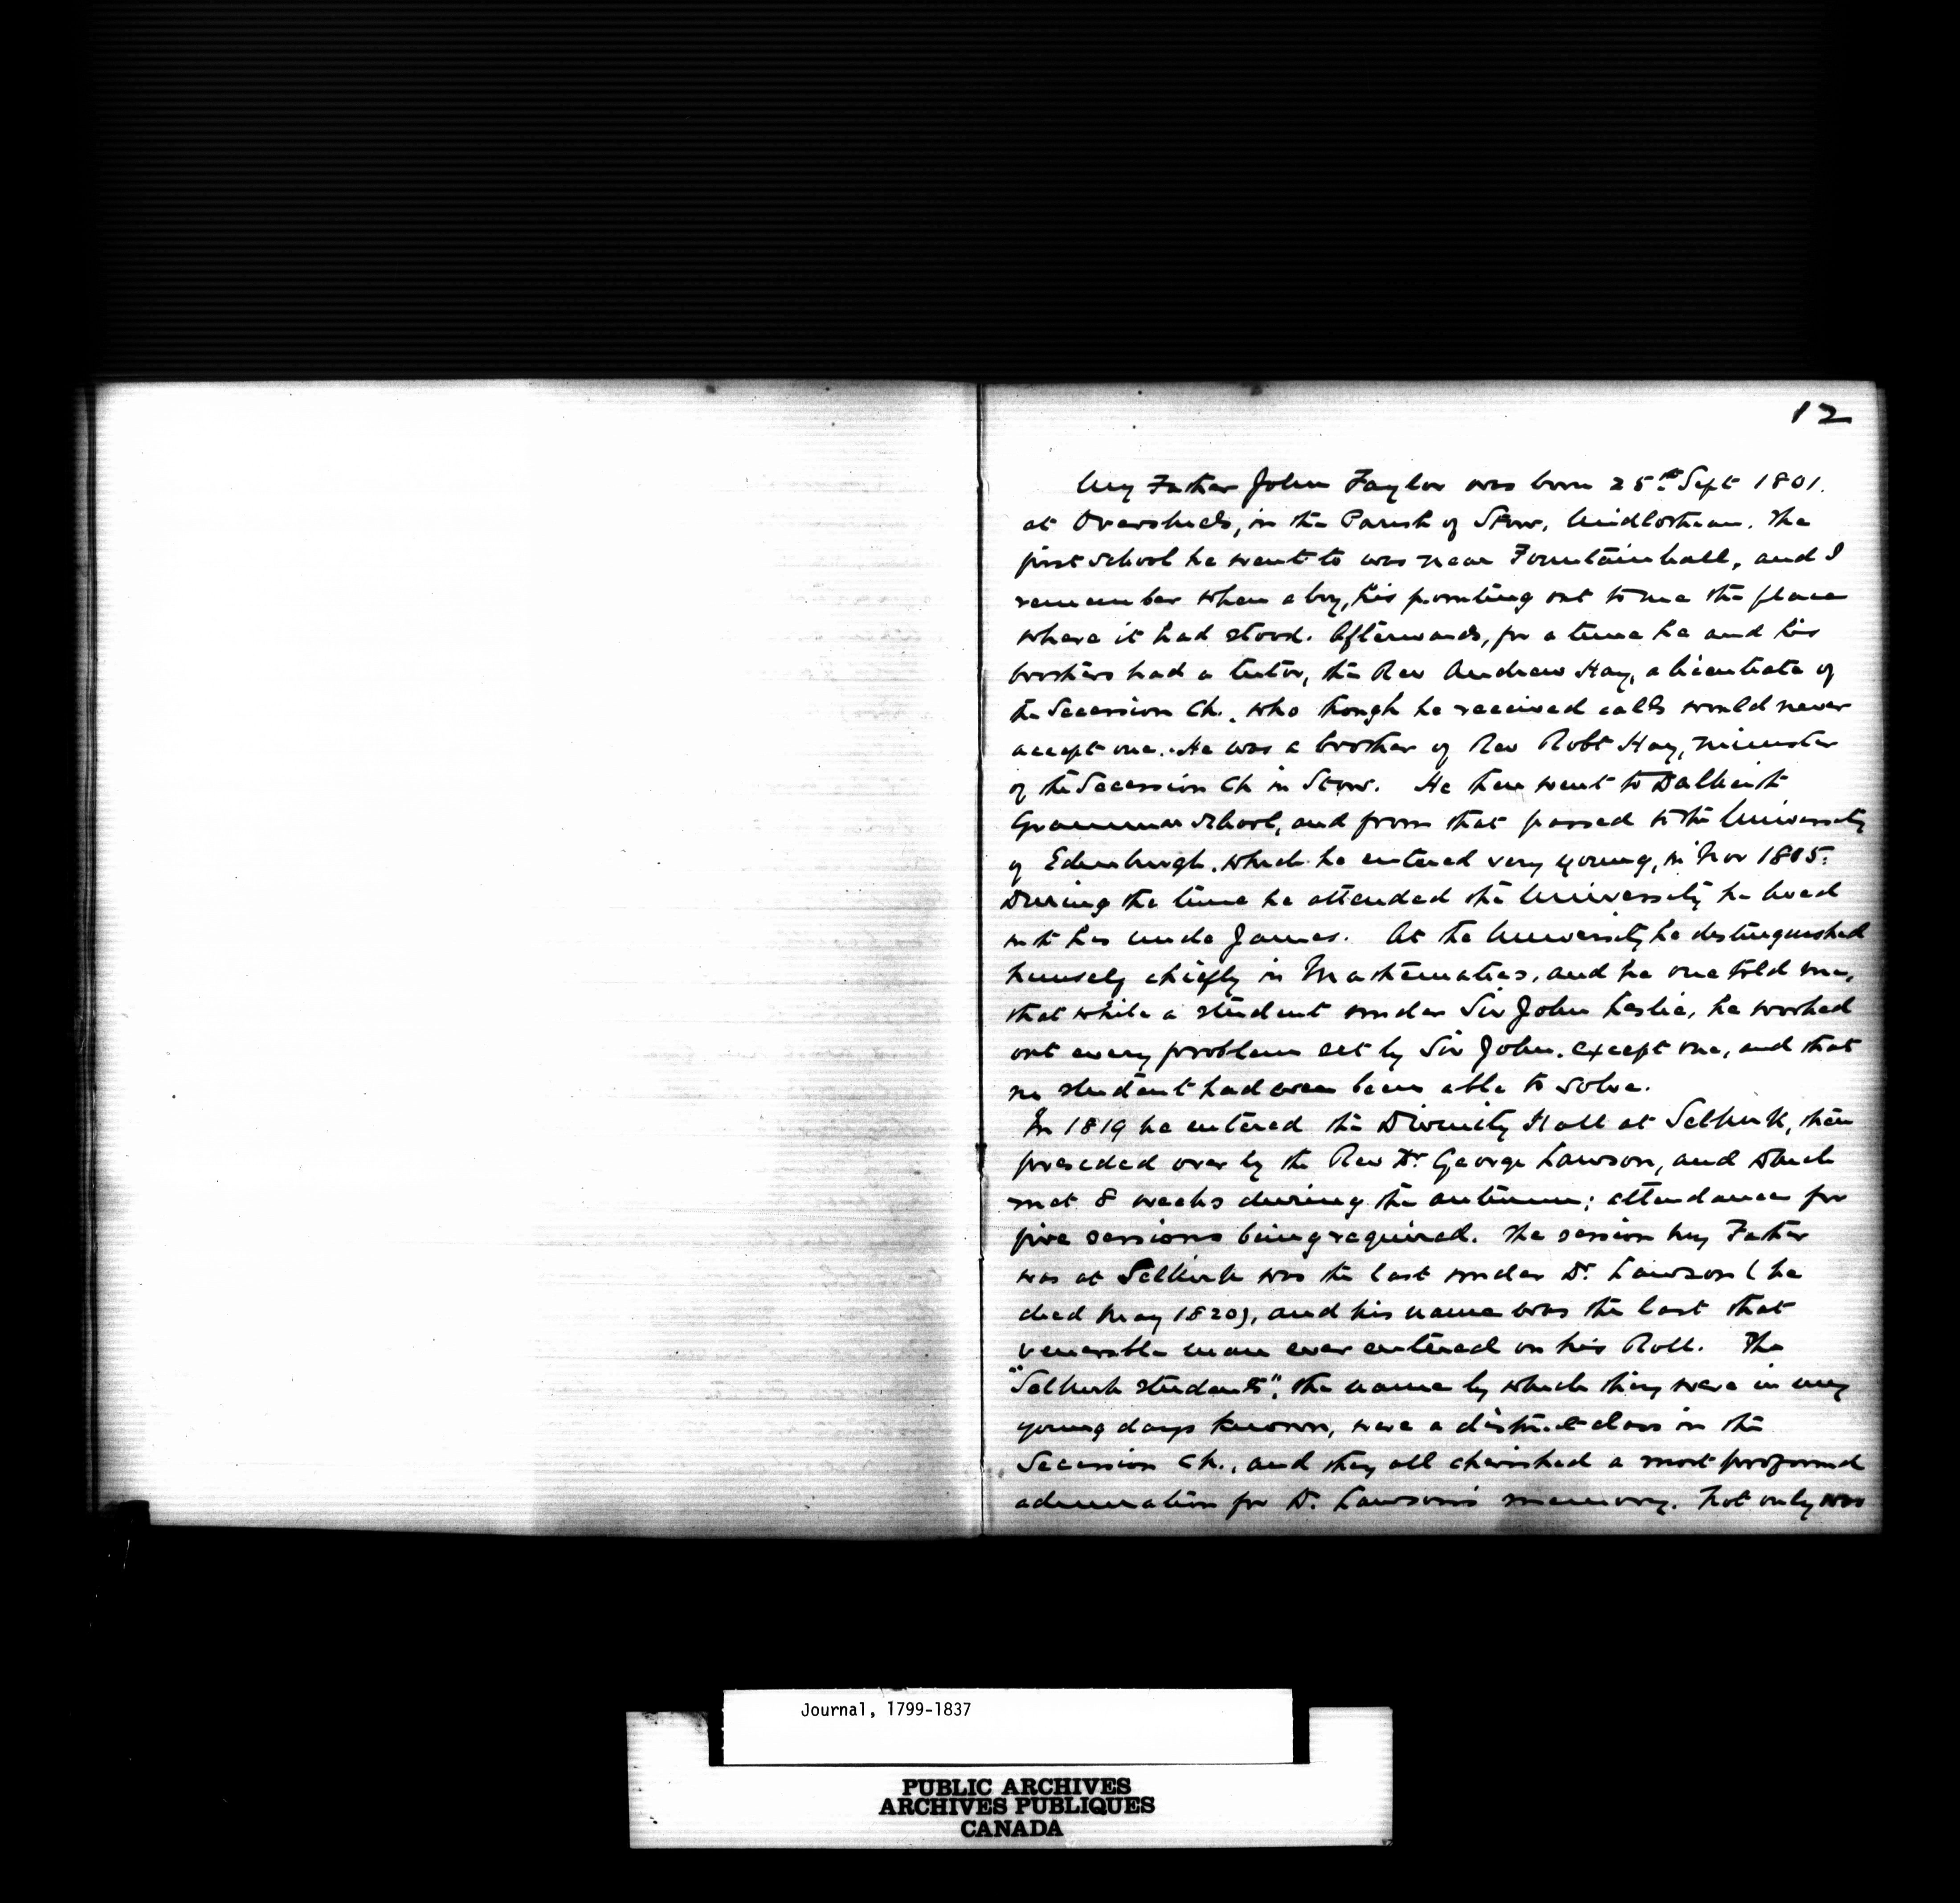 12
My Father John Taylor was born 25th Sept 1801.
at Overshiels, in the Parish of Stow, Midlothian. The
first school he went to was near Fountainhall, and I
remember when a boy, his pointing out to me the place
where it had stood. Afterwards, for a time he and his
brothers had a tutor, the Rev Andrew Hay, a licentiate of
the Secession Ch., who though he received calls would never
accept one. He was a brother of Rev Robt Hay, minister
of the Secession Ch in Stow. He then went to Dalkeith
Grammar School, and from that passed to the University
of Edinburgh, which he entered very young, in Nov 1815.
During the time he attended the University he lived
with his uncle James. At the University he distinguished
himself chiefly in Mathematics, and he once told me,
that while a student under Sir John Leslie, he worked
out every problem set by Sir John, except one, and that
no student had ever been able to solve.
In 1819 he entered the Divinity Hall at Selkirk, then
presided over by the Rev Dr George Lawson, and which
met 8 weeks during the autumn; attendance for
five sessions being required. The session my Father
was at Selkirk was the last under Dr. Lawson (he
died May 1820), and his name was the last that
venerable man ever entered on his Roll. The
"Selkirk students", the name by which they were in my
young days known, were a distinct class in the
Secession Ch., and they all cherished a most profound
admiration for Dr. Lawson's memory. Not only was
Journal, 1799-1837
PUBLIC ARCHIVES
ARCHIVES PUBLIQUES
CANADA